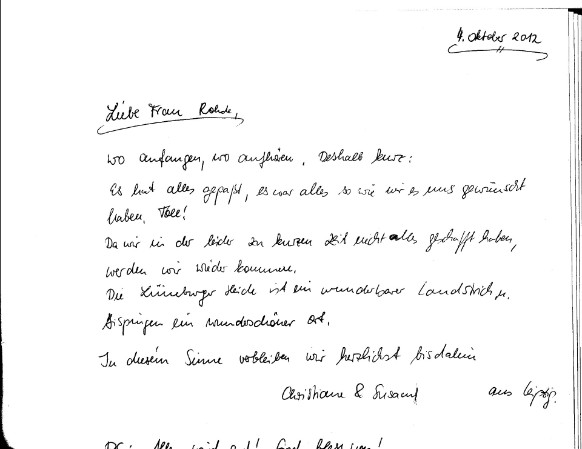 4. Oktober 2012
Liebe Frau Rohde,
wo anfangen, wo aufhören. Deshalb kurz:
Es hat alles gepaßt, es war alles so wie wir es uns gewünscht
haben. Toll!
Da wir in der leider zu kurzen Zeit nicht alles geschafft haben,
werden wir wieder kommen.
Die Lüneburger Heide ist ein wunderbarer Landstrich u.
Bispingen ein wunderschöner Ort.
In diesem Sinne verbleiben wir herzlichst bis dahin
Christiane &
aus Leipzig.